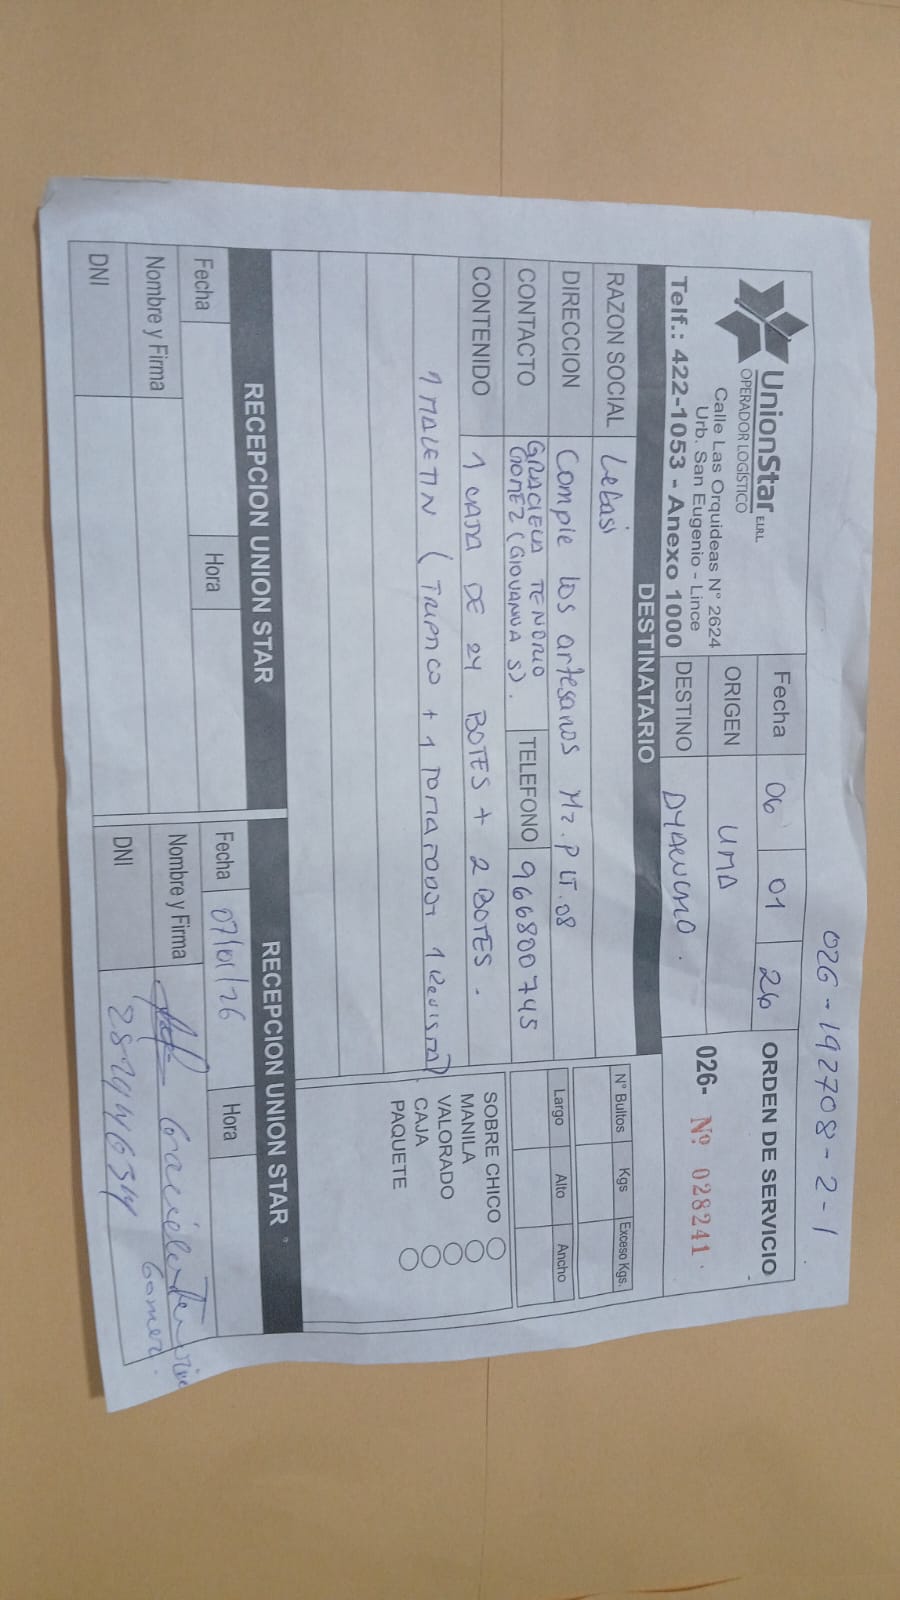 026-192708-2-1
UnionStar E.I.R.L.
OPERADOR LOGÍSTICO
Calle Las Orquideas N° 2624
Urb. San Eugenio - Lince
Telf.: 422-1053 - Anexo 1000
Fecha 06 01 26
ORIGEN LIMA
DESTINO AYACUCHO.
ORDEN DE SERVICIO
026- Nº 028241
DESTINATARIO
RAZON SOCIAL Lebasi
DIRECCION Comple los artesanos Mz. P LT. 08
CONTACTO GRACIELA TENORIO
GOMEZ (GIOVANNA S).
TELEFONO 966800745
CONTENIDO 1 CAJA DE 24 BOTES + 2 BOTES.
1 MALETIN (TRIPTICO + 1 TOMATODO + 1 Revista)
N° Bultos Kgs Exceso Kgs.
Largo Alto Ancho
SOBRE CHICO
MANILA
VALORADO
CAJA
PAQUETE
RECEPCION UNION STAR
Fecha Hora
Nombre y Firma
DNI
RECEPCION UNION STAR
Fecha 07/01/26 Hora
Nombre y Firma Graciela Tenorio
Gomez.
DNI